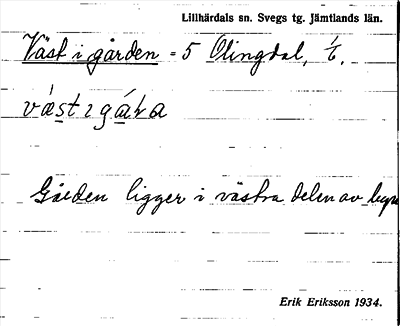 Lillhärdals sn. Svegs tg. Jämtlands län.
Väst i gården = 5 Olingdal, 1/6.
væst ɩ gára
Gården ligger i västra delen av byn
Erik Eriksson 1934.